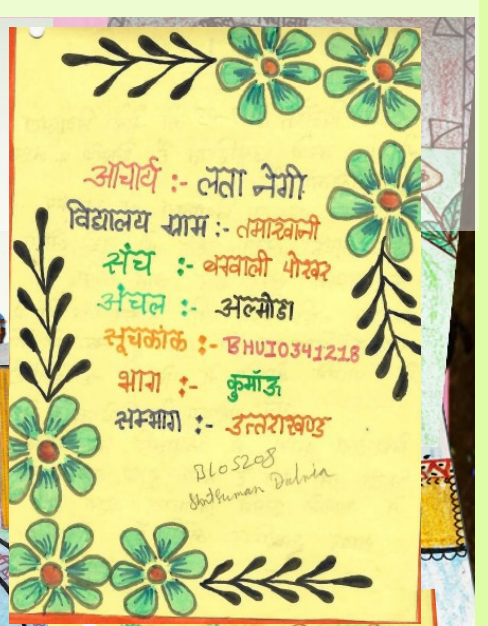 आचार्य :- लता नेगी
विद्यालय ग्राम :- तमाखानी
संच :- बखाली पोखर
अंचल :- अल्मोडा
सूचकांक :- BHUIO341218
भाग :- कुमाँऊ
सम्भाग :- उत्तराखण्ड
BLO5208
Suman Dalmia